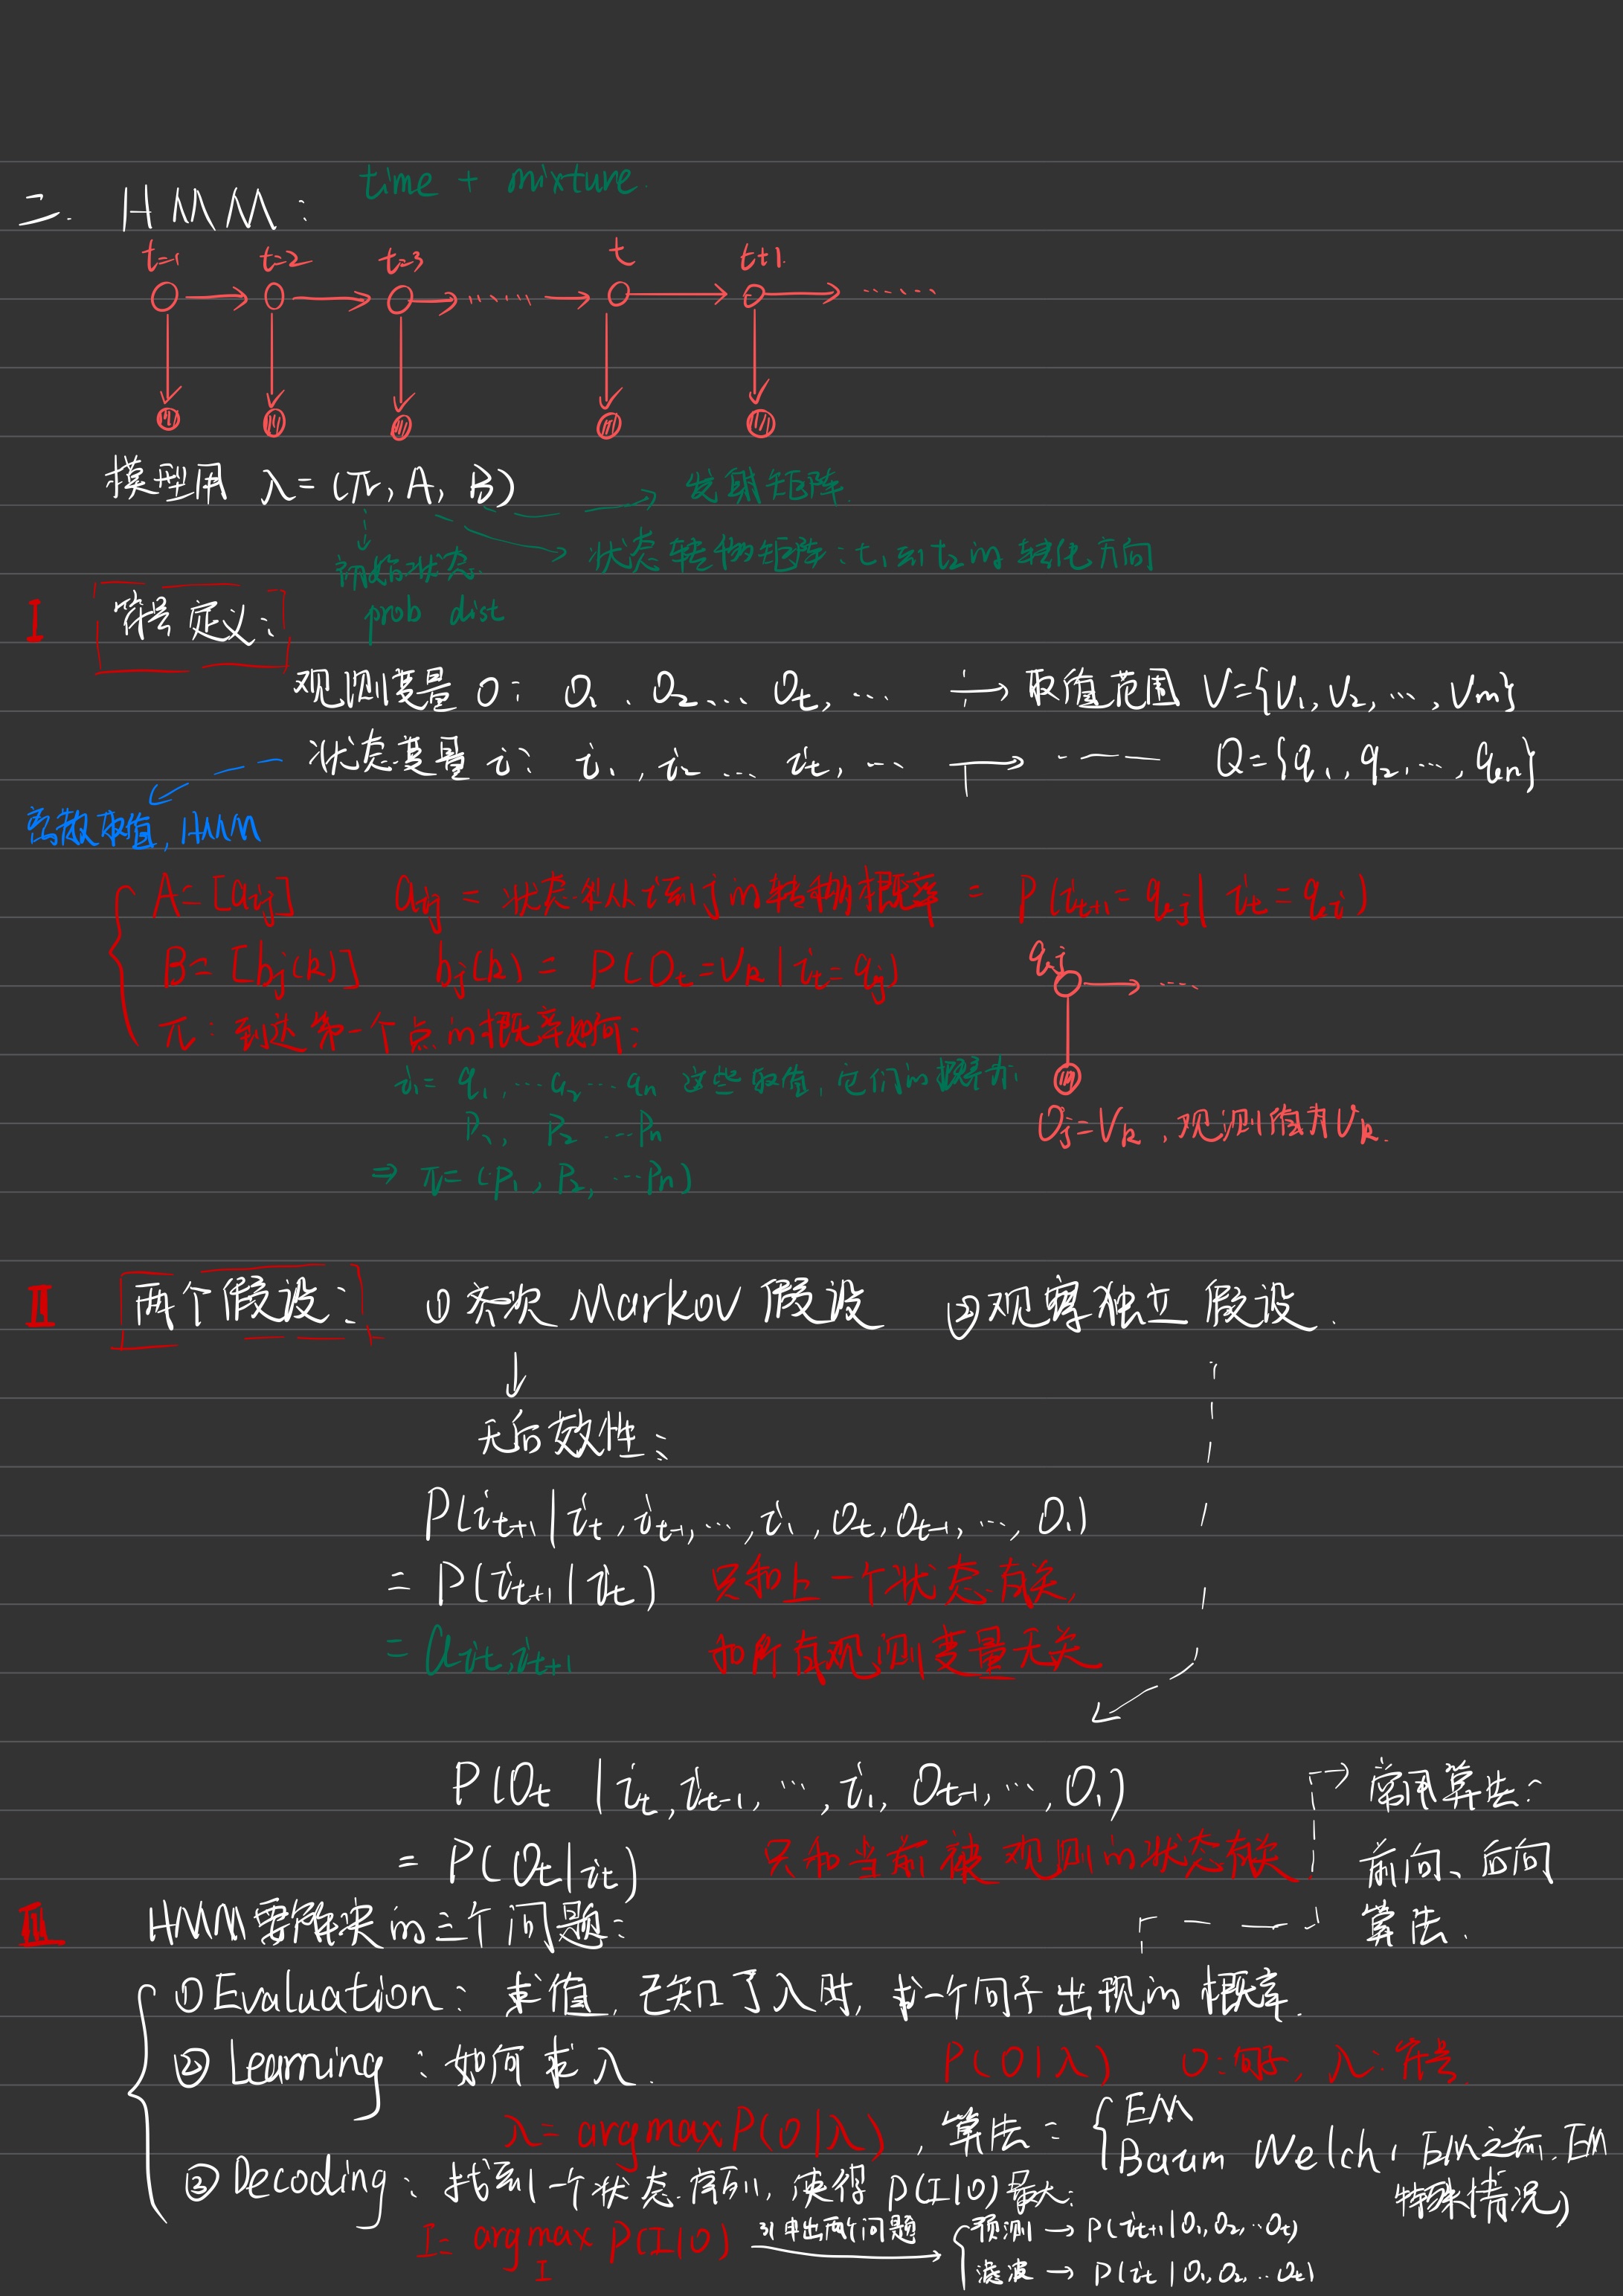 二. HMM: time + mixture.
t=1 t=2 t=3 t t+1
模型用 λ=(π, A, B) 发射矩阵.
初始状态 状态转移矩阵: t₁到t₂的转化方向
prob dist
I 符号定义:
观测变量 O: O₁, O₂... Oₜ, ... → 取值范围 V={V₁, V₂, ..., Vm}
状态变量 i: i₁, i₂ ... iₜ, ... → Q={q₁, q₂, ..., qn}
离散取值, HMM
A=[aij] aij = 状态从i到j的转移概率 = P(iₜ₊₁=qj | iₜ=qi)
B=[bj(k)] bj(k) = P(Oₜ=Vk | iₜ=qj) qj
π: 到达第一个点的概率如何:
i₁= q₁, ...q₂...qn 这些取值, 它们的概率为:
P₁, P₂ ...Pn Oj=Vk, 观测值为Vk.
⇒ π=(P₁, P₂, ...Pn)
II 两个假设: ① 齐次 Markov 假设 ② 观察独立假设.
无后效性:
P(iₜ₊₁ | iₜ, iₜ₋₁, ..., i₁, Oₜ, Oₜ₋₁, ..., O₁)
= P(iₜ₊₁ | iₜ) 只和上一个状态有关,
= a iₜ, iₜ₊₁ 和所有观测变量无关
P(Oₜ | iₜ, iₜ₋₁, ..., i₁, Oₜ₋₁, ..., O₁) 常用算法:
= P(Oₜ | iₜ) 只和当前被观测的状态有关 前向、后向
III HMM需解决的三个问题: 算法.
① Evaluation: 求值, 已知了λ时, 求一个句子出现的概率.
② Learning: 如何求λ. P(O|λ) O: 句子, λ: 符号
λ= argmax P(O|λ), 算法: { EM
Baum Welch, EM之前, EM
特殊情况)
③ Decoding: 找到一个状态序列, 使得 P(I|O)最大:
I= argmax P(I|O) 引申出两个问题 { 预测 → P(iₜ₊₁ | O₁, O₂, ...Oₜ)
I 滤波 → P(iₜ | O₁, O₂, ... Oₜ)